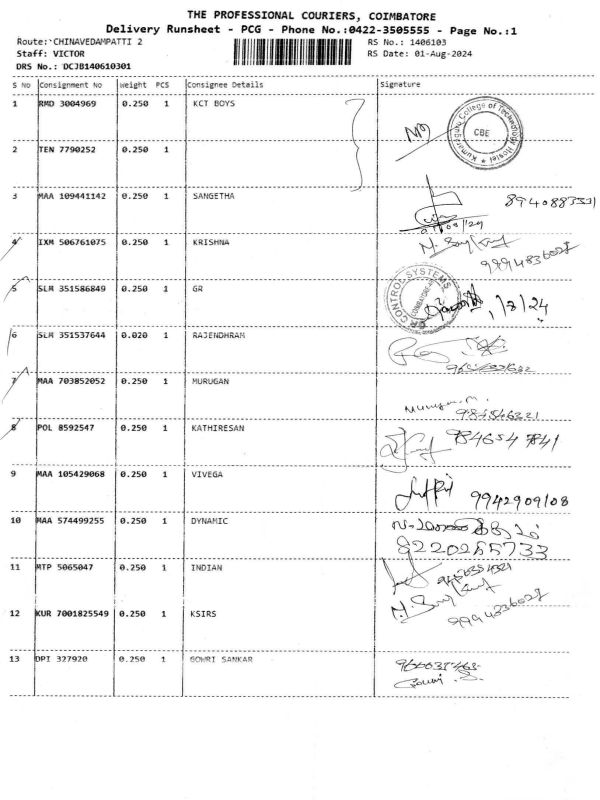 THE PROFESSIONAL COURIERS, COIMBATORE
Delivery Runsheet - PCG - Phone No.:0422-3505555 - Page No.:1
Route: CHINAVEDAMPATTI 2 RS No.: 1406103
Staff: VICTOR RS Date: 01-Aug-2024
DRS No.: DCJB140610301
S No Consignment No Weight PCS Consignee Details Signature
1 RMD 3004969 0.250 1 KCT BOYS
Kumaraguru College of Technology Hostel * CBE
2 TEN 7790252 0.250 1
3 MAA 109441142 0.250 1 SANGETHA
4 IXM 506761075 0.250 1 KRISHNA 9994836028
5 SLM 351586849 0.250 1 GR
GR CONTROL SYSTEMS 1/8/24
6 SLM 351537644 0.020 1 RAJENDHRAM
7 MAA 703852052 0.250 1 MURUGAN
Murugan.M.
8 POL 8592547 0.250 1 KATHIRESAN 9846547841
9 MAA 105429068 0.250 1 VIVEGA 9942909108
10 MAA 574499255 0.250 1 DYNAMIC
8220255733
11 MTP 5065047 0.250 1 INDIAN
12 KUR 7001825549 0.250 1 KSIRS 9994836028
13 DPI 327920 0.250 1 GOWRI SANKAR
Gowri .S.